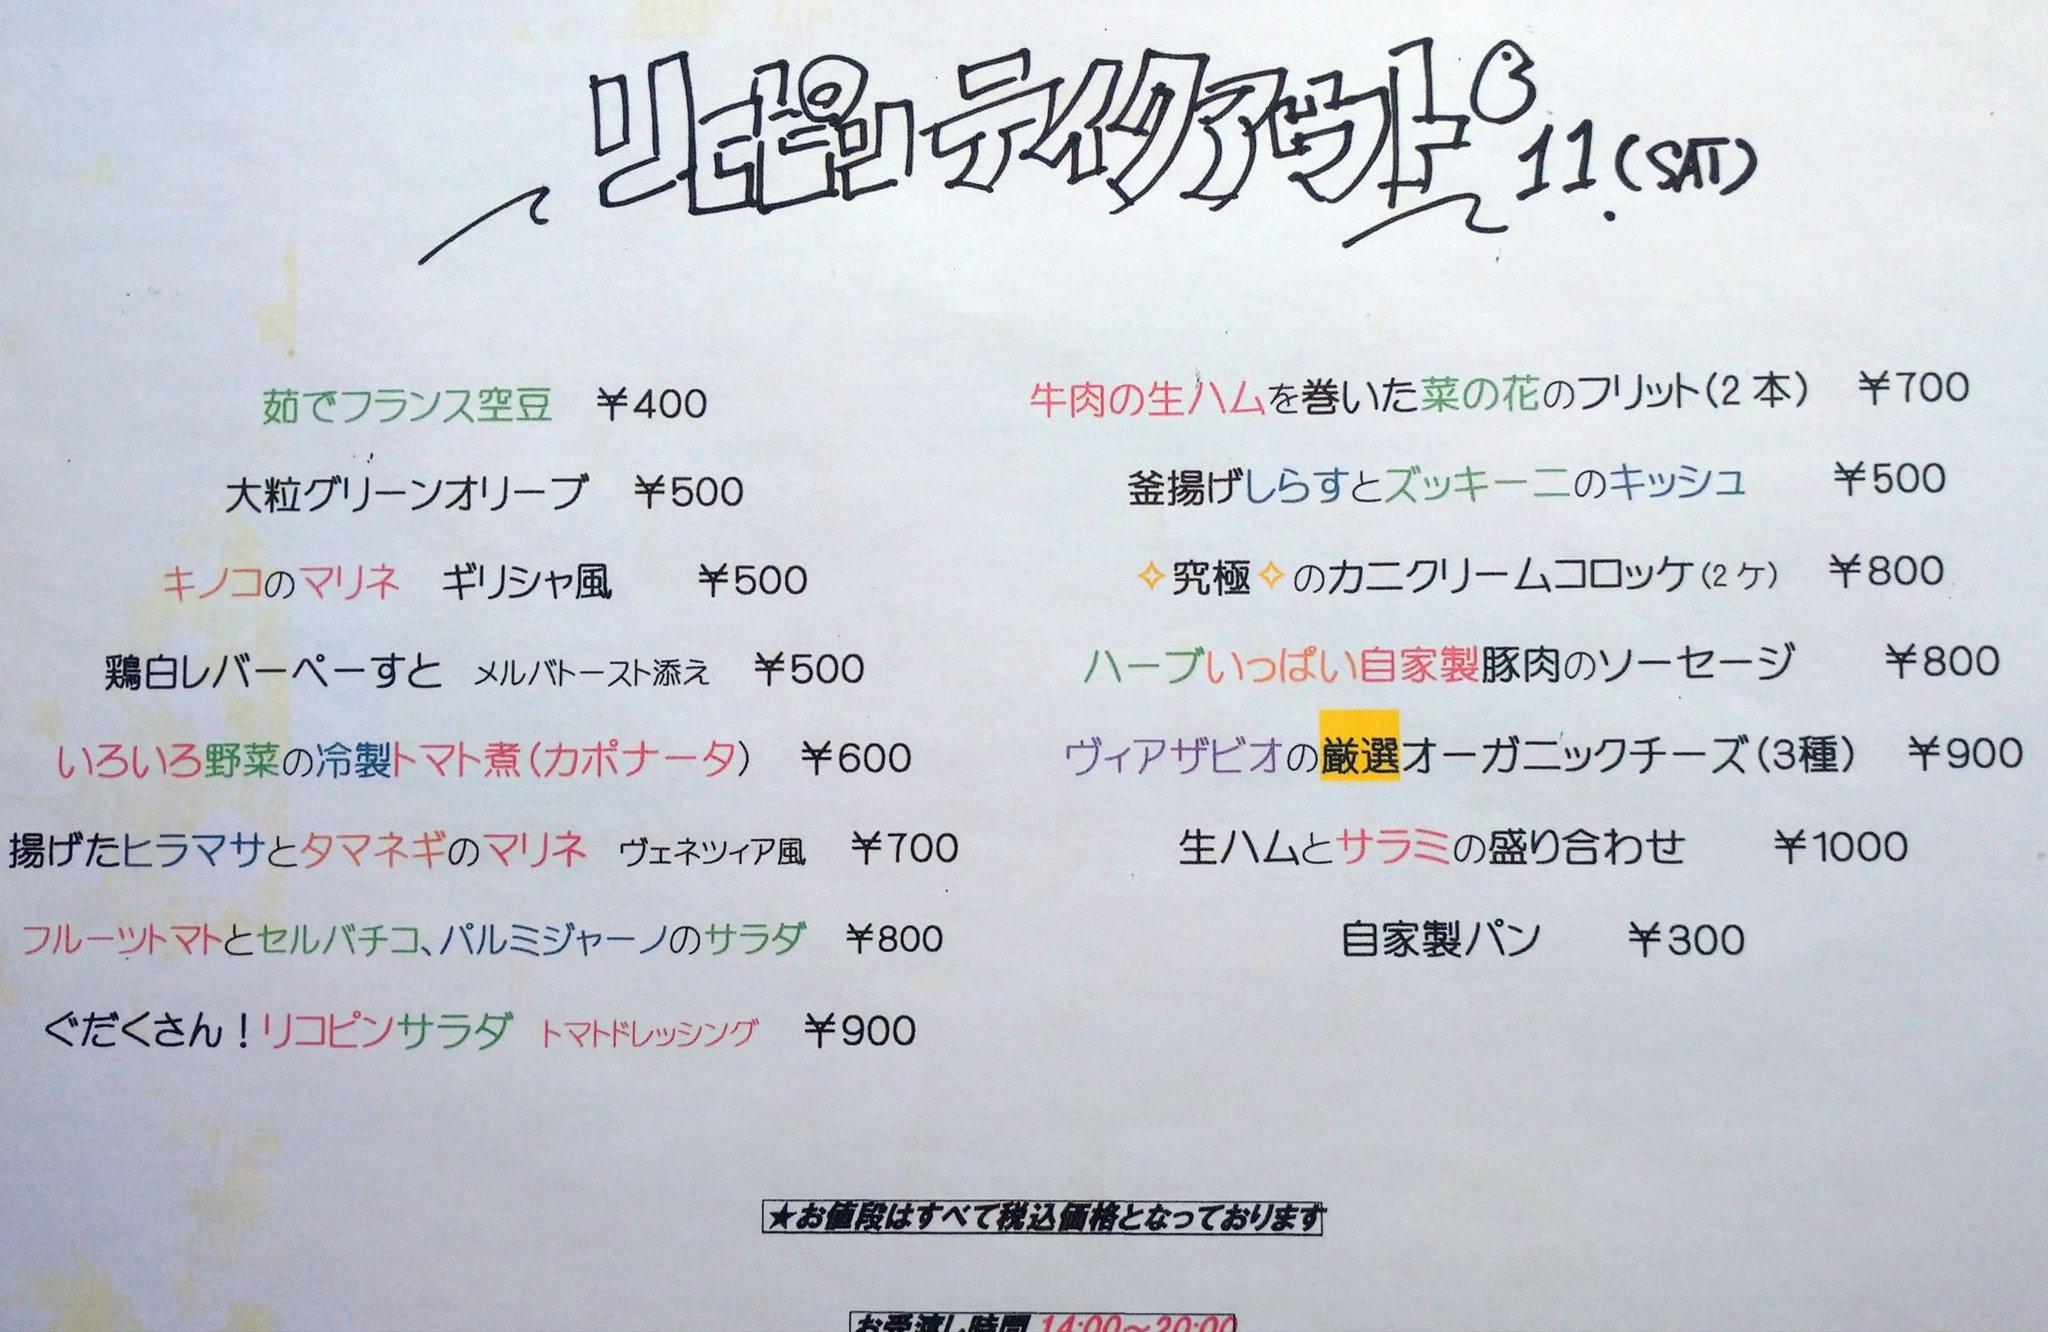 リコピンテイクアウト
11.(SAT)
茹でフランス空豆 ￥400
大粒グリーンオリーブ ￥500
キノコのマリネ ギリシャ風 ￥500
鶏白レバーペーすと メルバトースト添え ￥500
いろいろ野菜の冷製トマト煮(カポナータ) ￥600
揚げたヒラマサとタマネギのマリネ ヴェネツィア風 ￥700
フルーツトマトとセルバチコ、パルミジャーノのサラダ ￥800
ぐだくさん！リコピンサラダ トマトドレッシング ￥900
牛肉の生ハムを巻いた菜の花のフリット(2本) ￥700
釜揚げしらすとズッキーニのキッシュ ￥500
✧究極✧のカニクリームコロッケ(2ケ) ￥800
ハーブいっぱい自家製豚肉のソーセージ ￥800
ヴィアザビオの厳選オーガニックチーズ(3種) ￥900
生ハムとサラミの盛り合わせ ￥1000
自家製パン ￥300
★お値段はすべて税込価格となっております
お受渡し時間 14:00～20:00